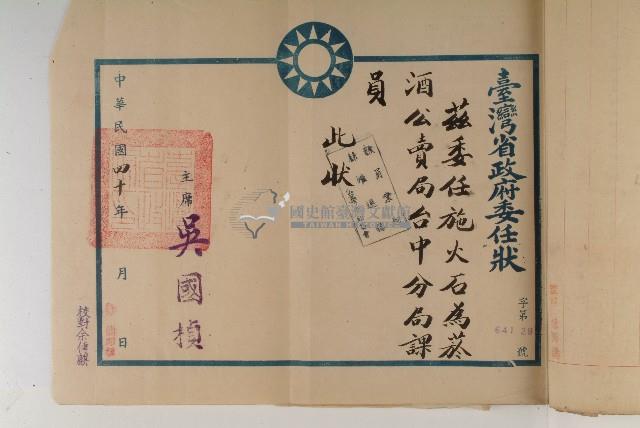 臺灣省政府委任狀
字第
號
茲委任施火石為菸
酒公賣局台中分局課
員
此狀
主席 吳國楨
中華民國四十年 月 日
國史館臺灣文獻館
TAIWAN HISTORICA